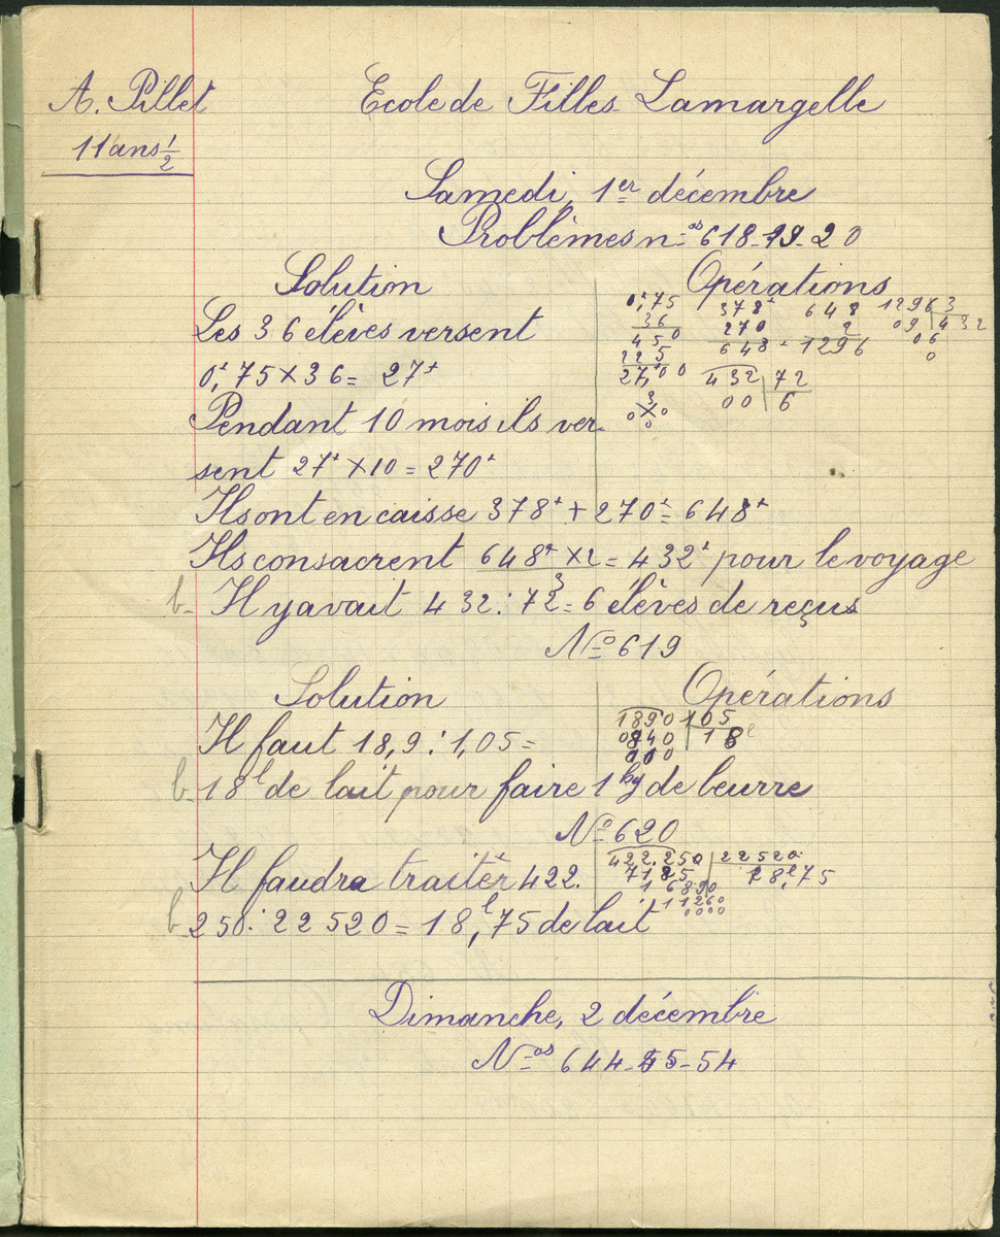 A. Pillet
Ecole de Filles Lamargelle
11 ans 1/2
Samedi, 1er décembre
Problèmes nos 618-19-20
Solution
Opérations
Les 36 élèves versent
0f,75 × 36 = 27f
Pendant 10 mois ils ver-
sent 27f × 10 = 270f
Ils ont en caisse 378f + 270f = 648f
Ils consacrent 648f × 2 / 3 = 432f pour le voyage
b- Il y avait 432 : 72 = 6 élèves de reçus
0f,75
36
450
225
27f,00
3
0 × 0
0
378f
270
648
648
2
1296
1296 | 3
09 | 432
06
0
432 | 72
00 | 6
No 619
Solution
Opérations
Il faut 18,9 : 1,05 =
b- 18l de lait pour faire 1kg de beurre
1890 | 105
0840 | 18l
000
No 620
Il faudra traiter 422.
b- 250 : 22520 = 18l,75 de lait
422.250 | 22520
7185 | 18l,75
16890
11260
0000
Dimanche, 2 décembre
Nos 644-45-54